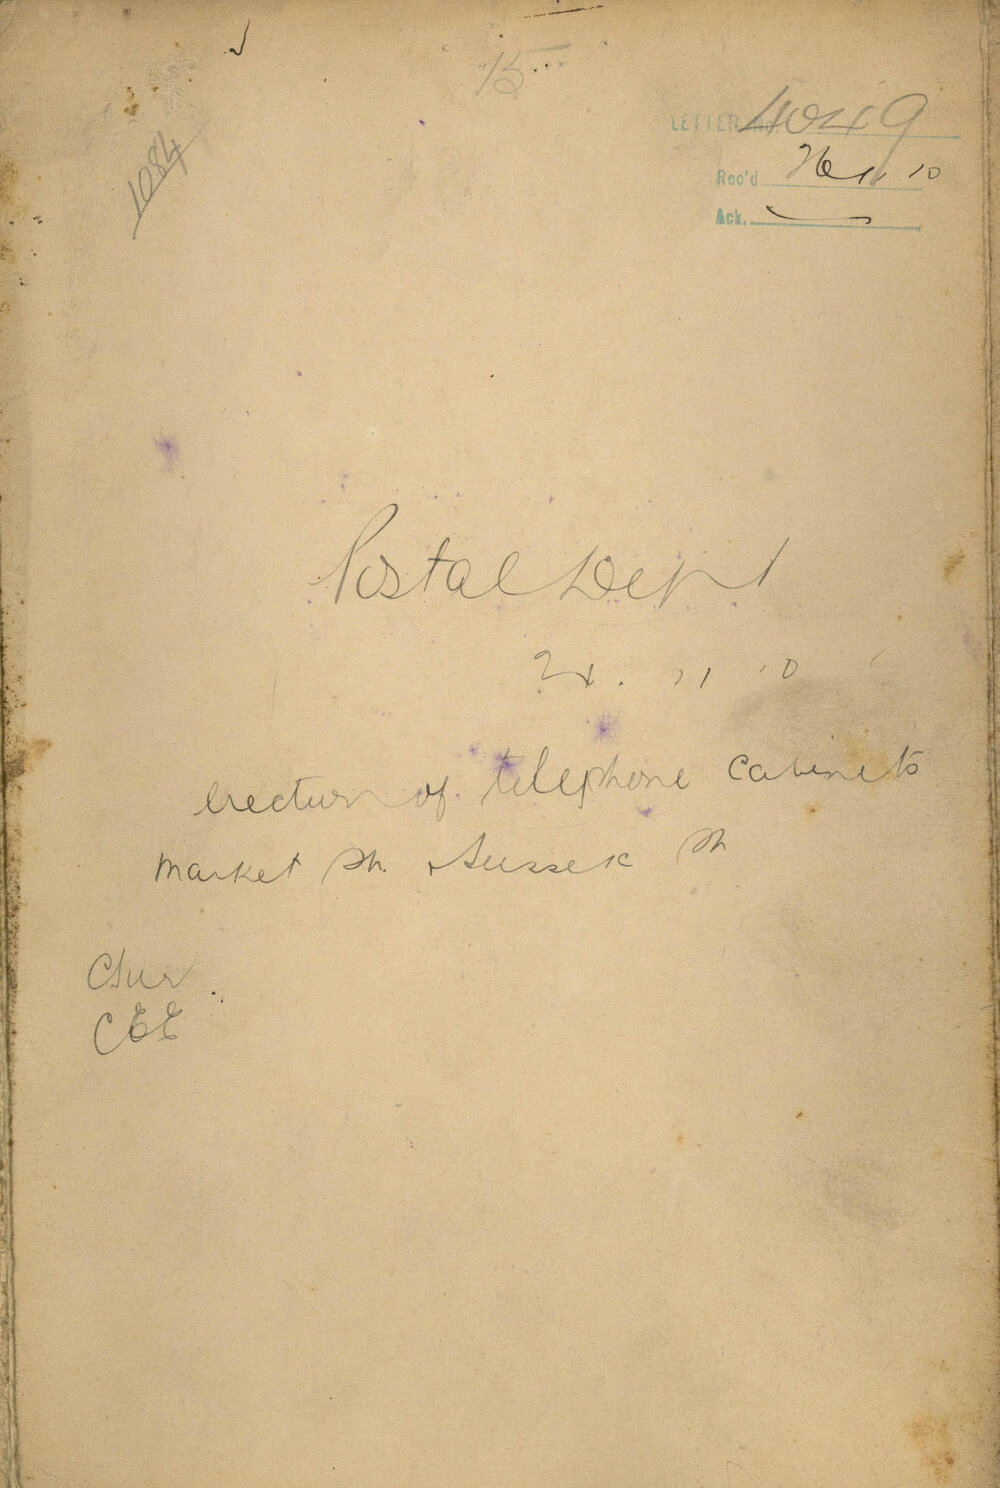 15
1084
LETTER No. 4049
Rec'd 26 11 10
Ack.
Postal Dept
24. 11 10
erection of telephone cabinets
Market St. & Sussex St
CSur
CEE